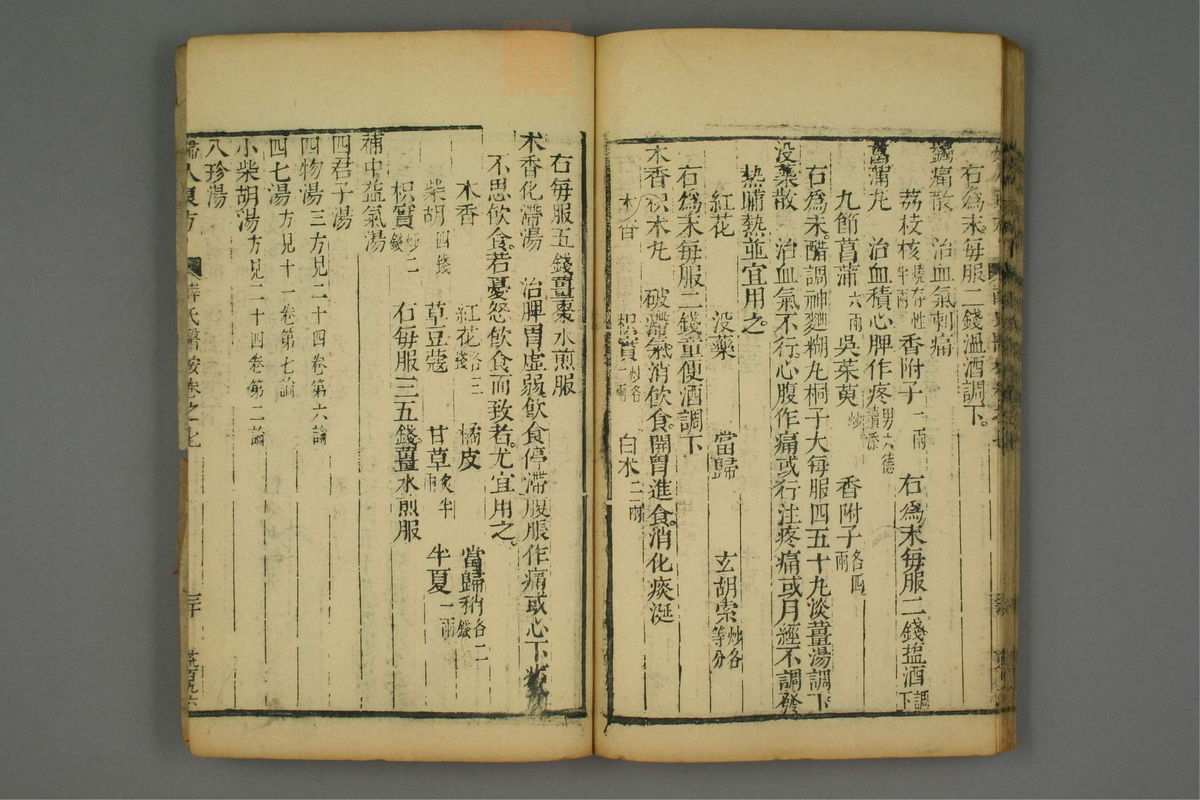 右爲末每服二錢溫酒調下。
痛散　治血氣刺痛
荔枝核燒存性半兩　香附子一兩　右爲末每服二錢盐酒調下
菖蒲丸　治血積心脾作疼男六德續添
九節菖蒲六兩　吳茱萸炒　香附子各四兩
右爲末醋調神麯糊丸桐子大每服四五十丸淡薑湯調下
没藥散　治血氣不行心腹作痛或行注疼痛或月經不調發
熱晡熱並宜用之。
紅花　没藥　當歸　玄胡索炒各等分
右爲末每服二錢童便酒調下
木香枳朮丸　破滯氣消飲食。開胃進食。消化痰涎
木香　枳實炒各一兩　白朮二兩
右每服五錢薑棗水煎服
木香化滯湯　治脾胃虛弱飲食停滯腹脹作痛或心下
不思飲食。若憂怒飲食而致者。尤宜用之。
木香　紅花各三錢　橘皮　當歸稍各二錢
柴胡四錢　草豆蔻　甘草炙半兩　半夏一兩
枳實炒二錢　右每服三五錢薑水煎服
補中益氣湯
四君子湯
四物湯三方見二十四卷第六論
四七湯方見十一卷第七論
小柴胡湯方見二十四卷第二論
八珍湯
婦人良方　薛氏醫按卷之七